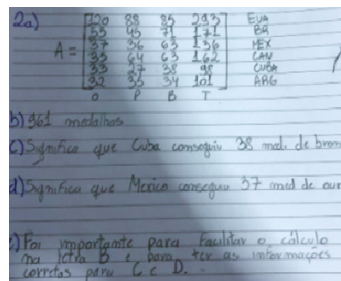 2a)
120 88 85 293 EUA
55 45 71 171 BR
A = 37 36 63 136 MEX
35 64 63 162 CAN
33 27 38 98 CUBA
32 35 34 101 ARG
O P B T
b) 961 medalhas
c) Significa que Cuba conseguiu 38 med. de bron
d) Significa que Mexico conseguiu 37 med de our
) Foi importante para facilitar o cálculo
na letra B e para ter as informações
corretas para C e D.